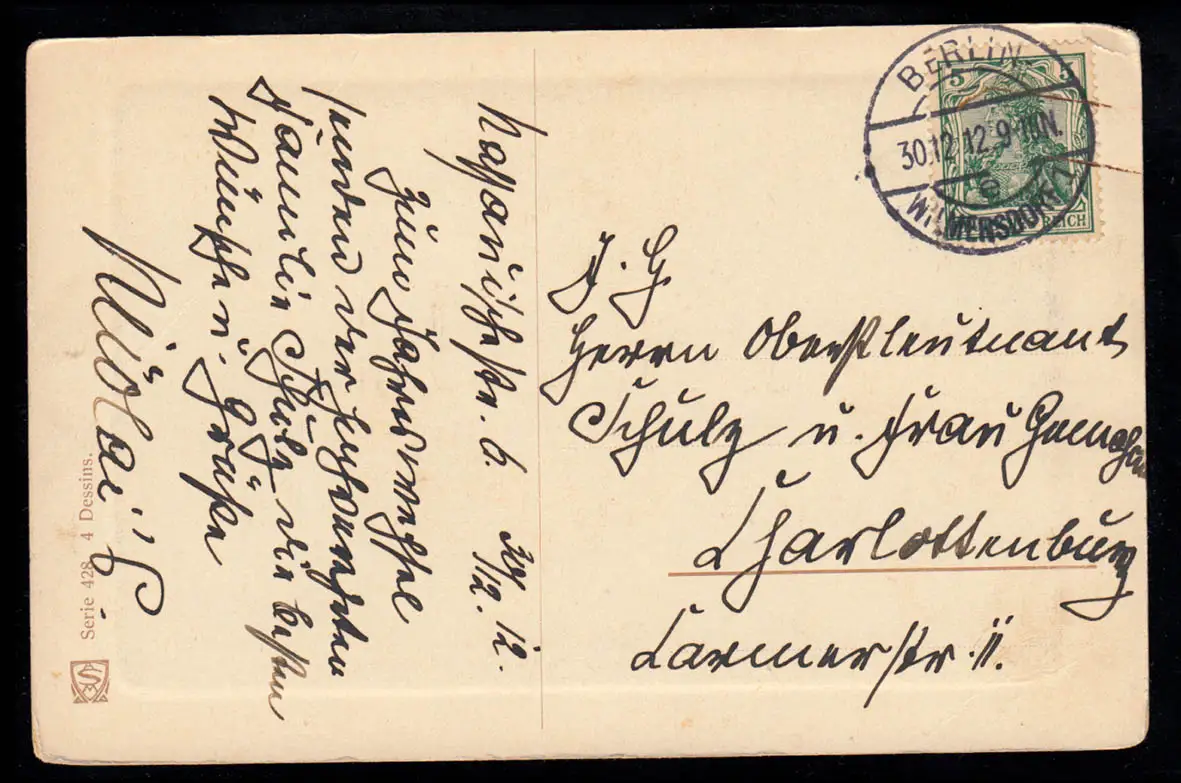 Nassauischestr. 6. 30/12. 12.
Zum Jahreswechsel
senden der hochverehrten
Familie Schulz die besten
Wünsche u. Grüße
Nicolai's
Serie 428. 4 Dessins.
BERLIN
5 5
30.12.12.9-10N.
WILMERSDORF 1
REICH
Herrn Oberstleutnant
Schulz u. Frau Gemahlin
Charlottenburg
Carmerstr. 11.